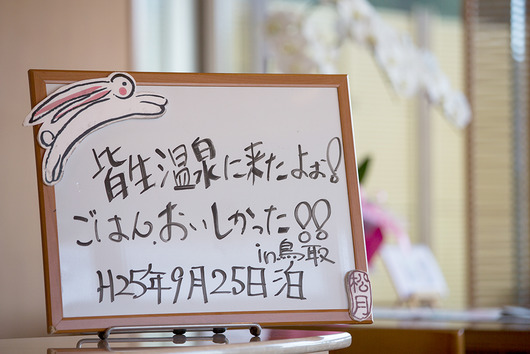 皆生温泉に来たよぉ!
ごはん、おいしかった!!
in鳥取
H25年9月25日泊
松月